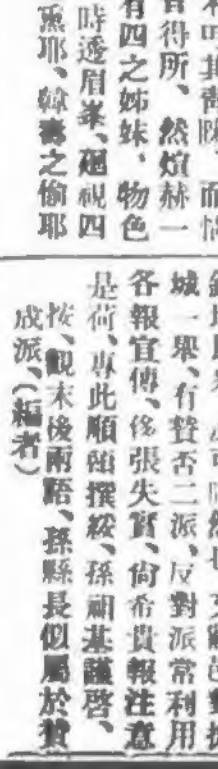 得所、然煊赫一
有四之姊妹、物色
時透眉峯、廻視四
熏耶、韓壽之偷耶
城一舉、有贊否二派、反對派常利用
各報宣傳、侈張失實、尙希貴報注意
是荷、專此順頌撰綏、孫祖基謹啓、
按、觀末後兩語、孫縣長似屬於贊
成派、(編者)